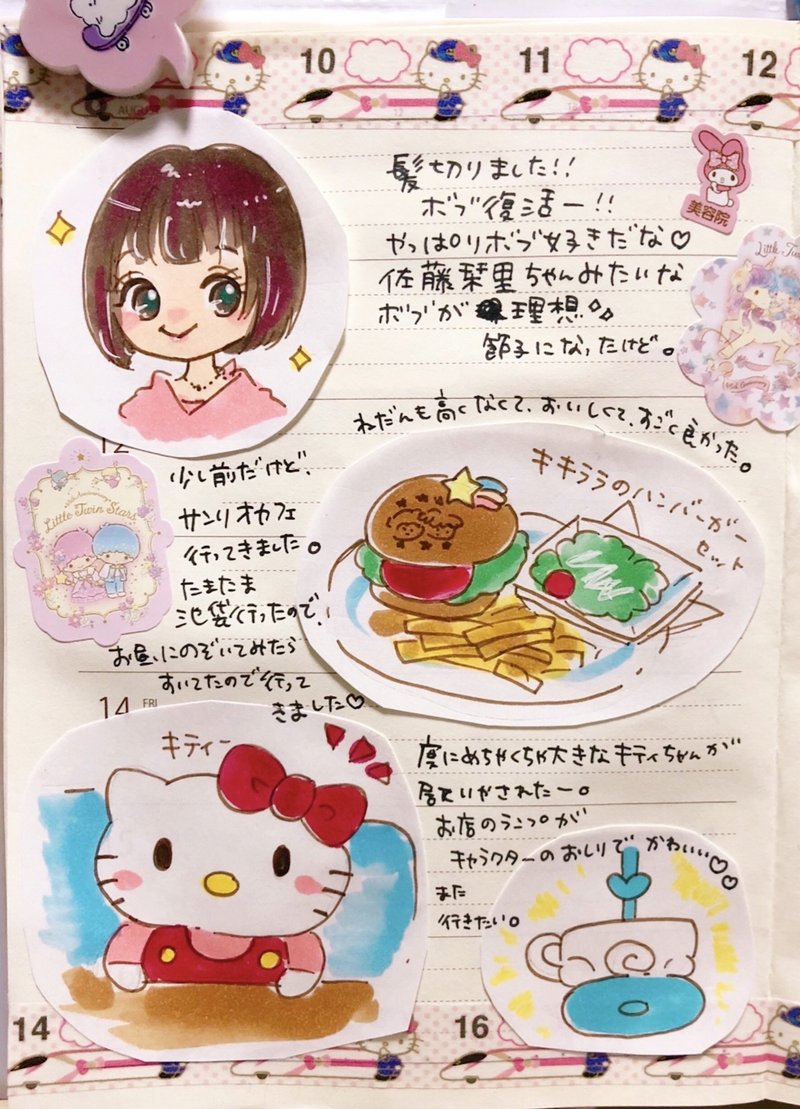 10
11
12
AUGUST
髪切りました!!
ボブ復活ー!!
やっぱりボブ好きだな♡
佐藤栞里ちゃんみたいな
ボブが 理想
節子になったけど。
美容院
Little Twin
ねだんも高くなくて、おいしくて、すごく良かった。
キキララのハンバーガー
セット
12
Little Twin Stars
少し前だけど、
サンリオカフェ
行ってきました。
たまたま
池袋行ったので、
お昼にのぞいてみたら
すいてたので行って
きました♡
14 FRI
キティー
席にめちゃくちゃ大きなキティちゃんが
居ていやされたー。
お店のランプが
キャラクターのおしりで かわいい♡♡
また
行きたい。
14
16